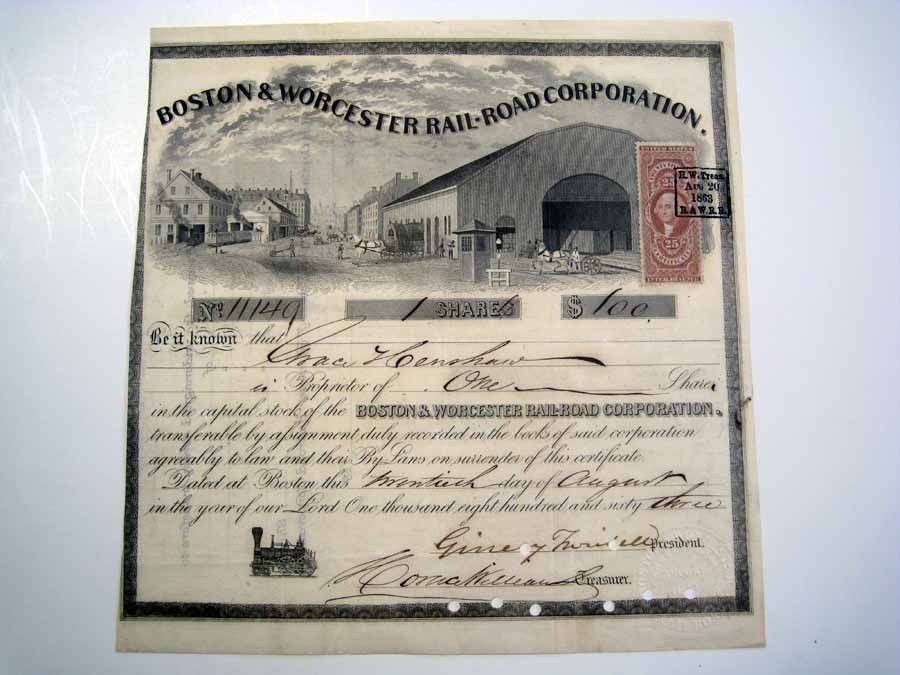 BOSTON & WORCESTER RAIL-ROAD CORPORATION.
UNITED STATES
25 25
25
CERTIFICATE
INTER. REVENUE
R.W. Treas.
AUG 20
1863
B.& W.R.R.
No. 11149 1 SHARES $ 100.
Be it known that
Henshaw
is Proprietor of One Shares
in the capital stock of the BOSTON & WORCESTER RAIL-ROAD CORPORATION.
transferable by assignment duly recorded in the books of said corporation
agreeably to law and their By Laws on surrender of this certificate.
Dated at Boston this twentieth day of August
in the year of our Lord One thousand eight hundred and sixty three
Ginery Twichell President.
Treasurer.